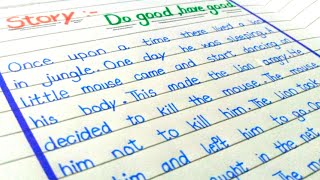 Story :- Do good, have good
Once upon a time there lived a
in jungle. One day he was sleeping, a
little mouse came and start dancing on
his body. This made the lion angry. He
decided to kill the mouse. The mouse
him not to kill him. The Lion took
him and left him to go. On
caught in the net
The mouse